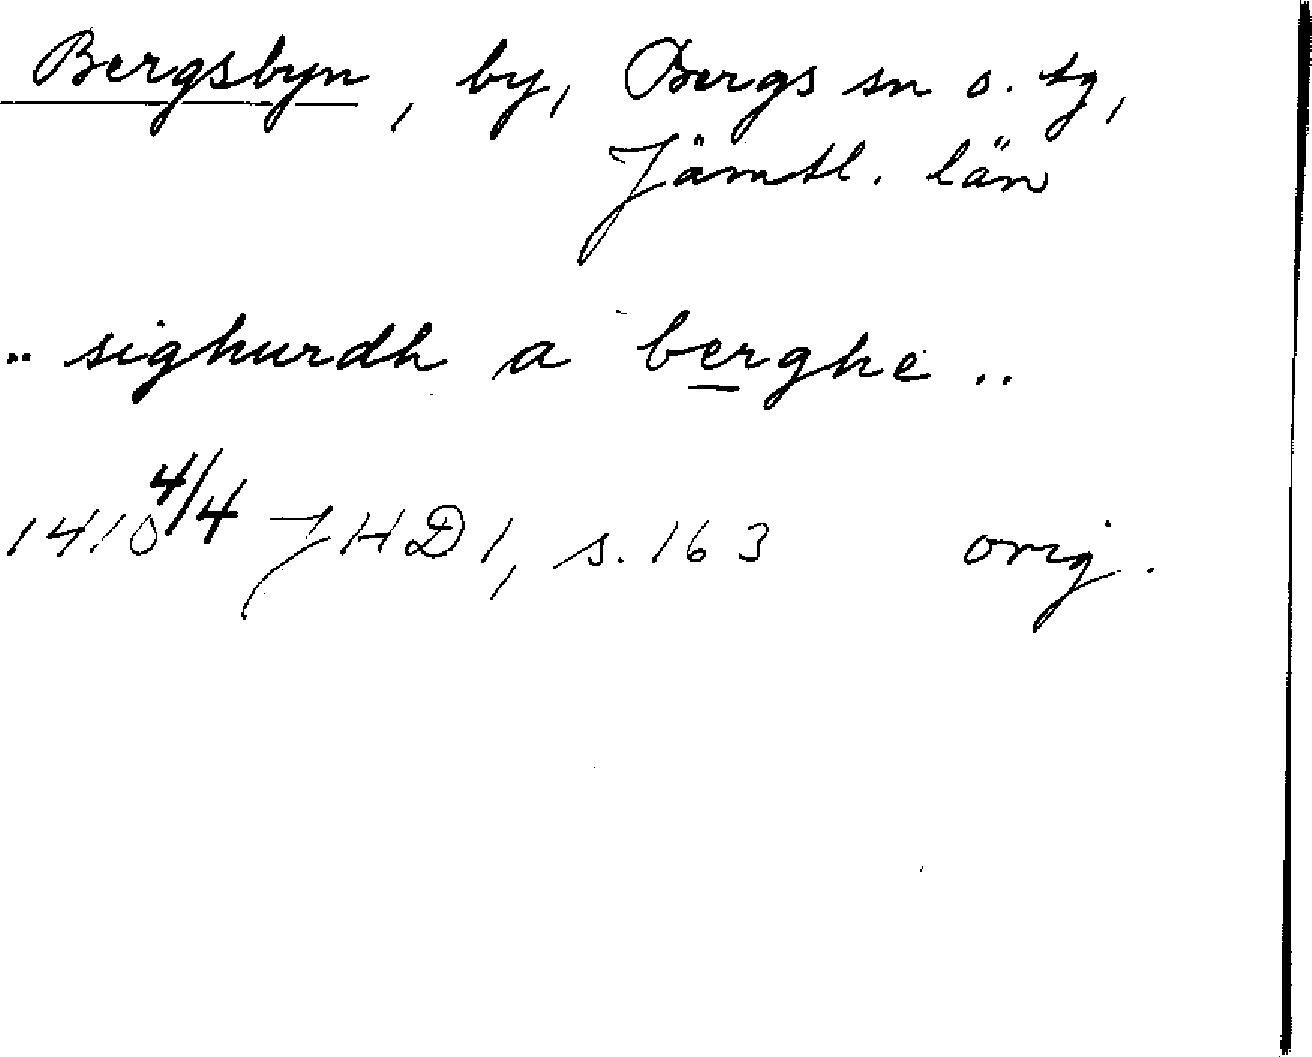 Bergsbyn, by, Bergs sn o. tg,
Jämtl. län
.. sighurdh a berghe ..
1410 4/4 JHD 1, s. 163 orig.